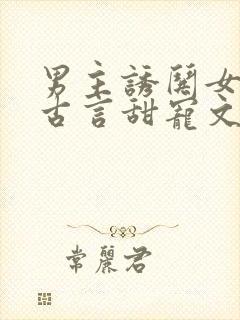 男主誘鬨女
古言甜寵文
常麗君